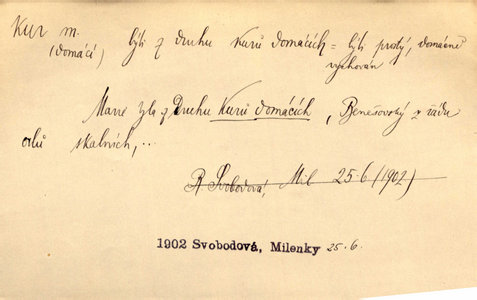 Kur m. býti z druhu kurů domácích = býti prostý, domácně
(domácí) vychován
Marie byla z druhu kurů domácích, Benešovský z řádu
orlů skalních,...
R Svobodová, Mil 25·6 (1902)
1902 Svobodová, Milenky 25·6.